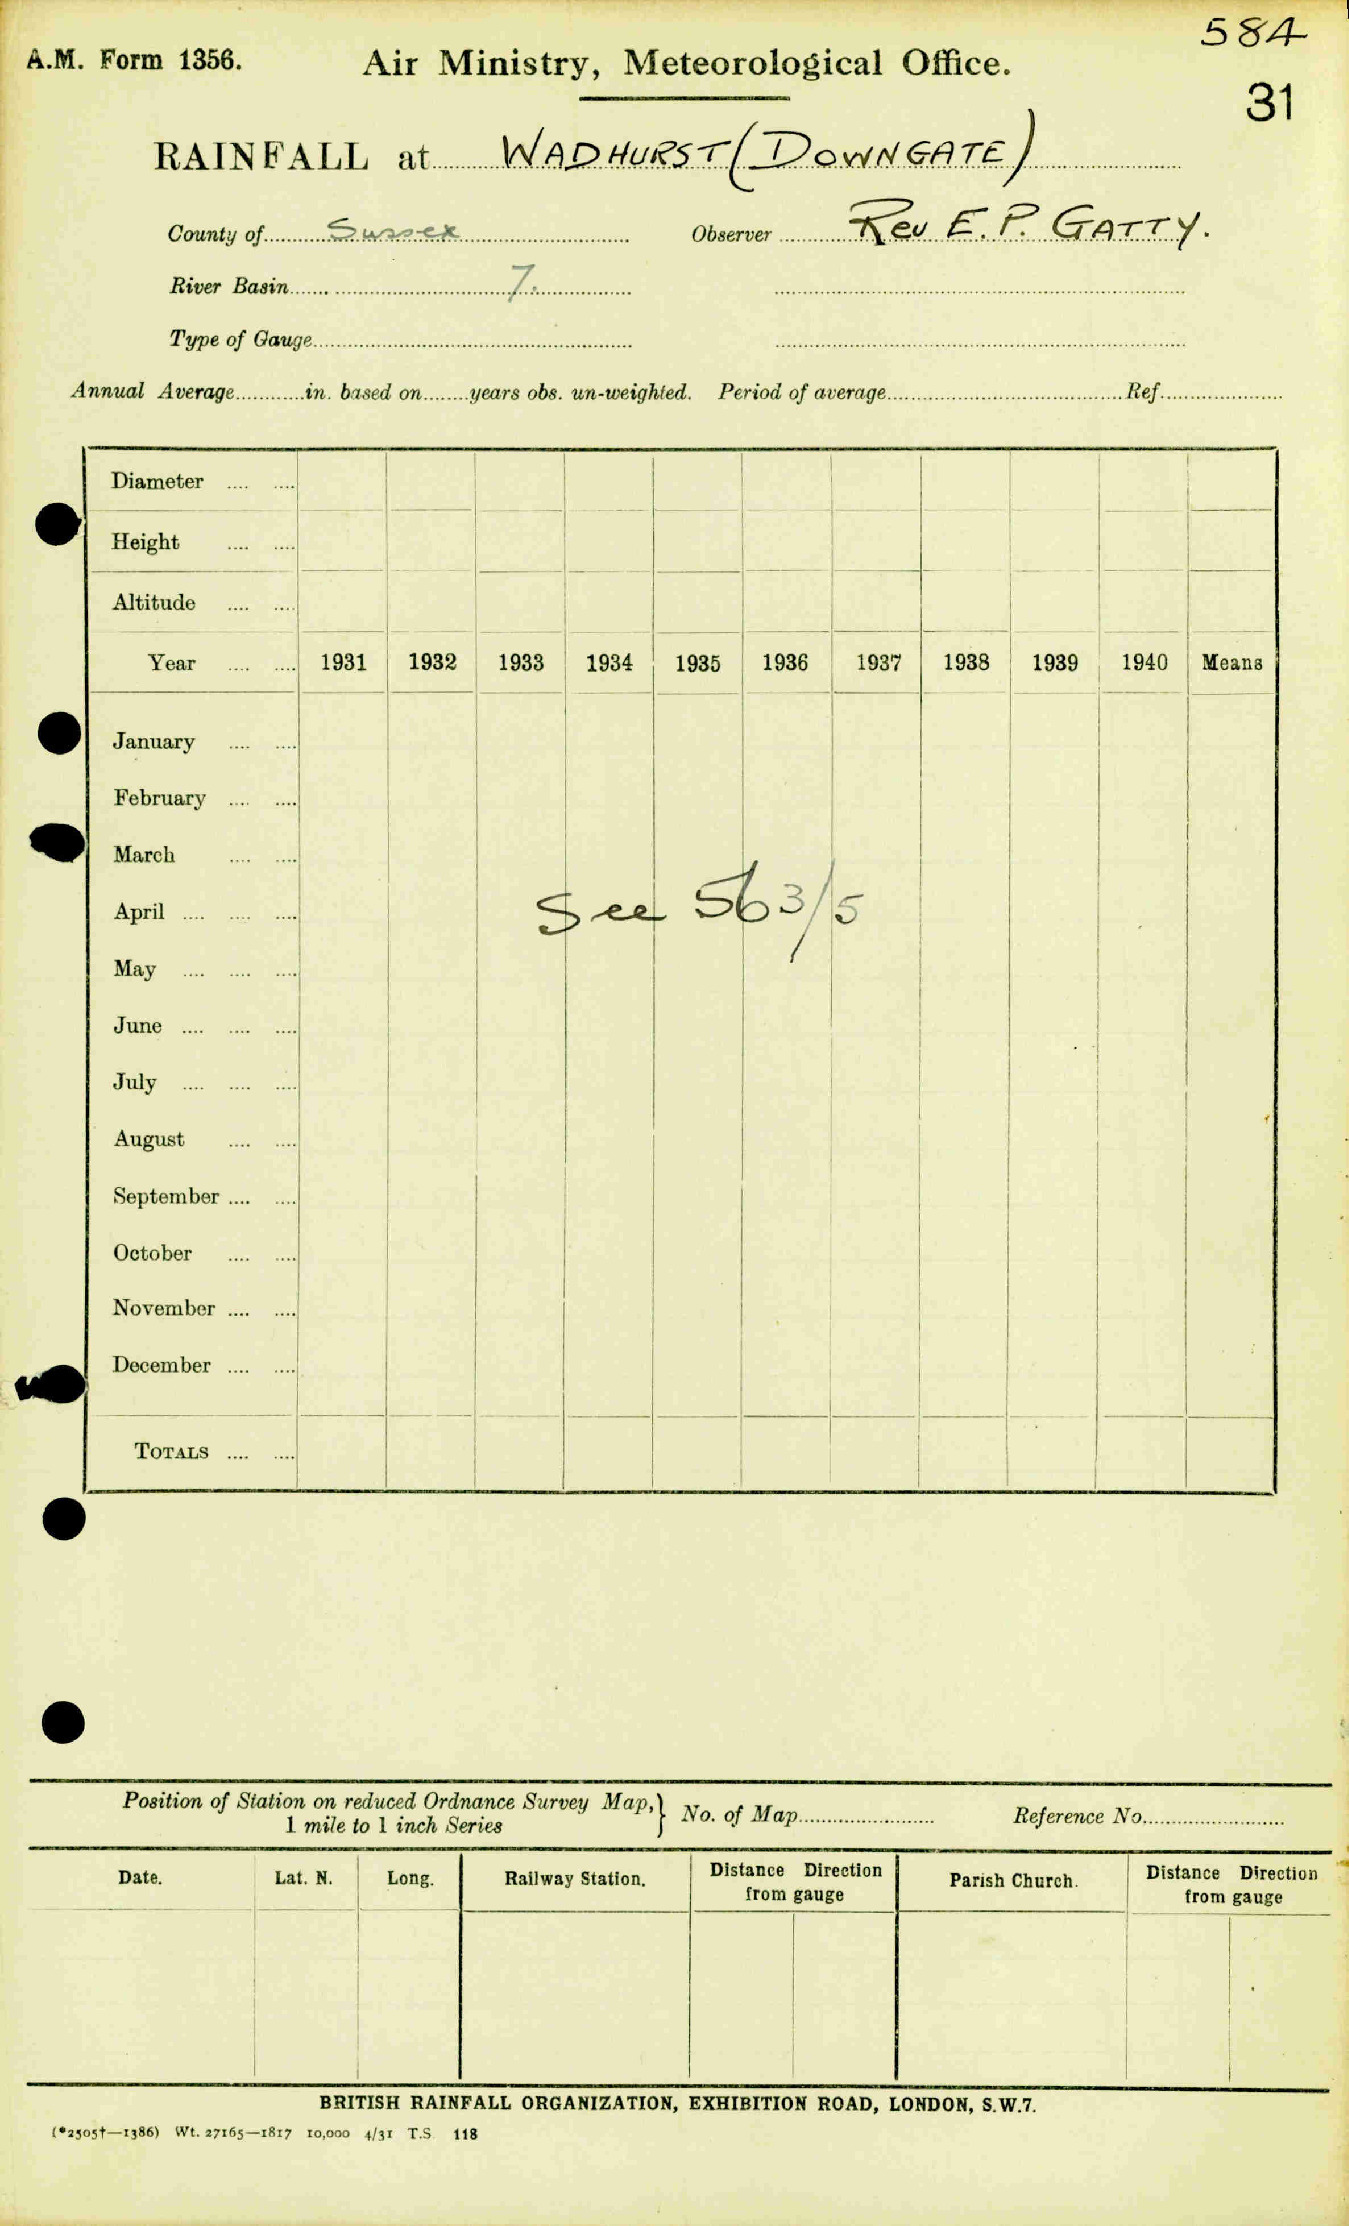 584
A.M. Form 1356. Air Ministry, Meteorological Office.
31
RAINFALL at WADHURST (DOWNGATE)
County of Sussex Observer Rev E. P. GATTY.
River Basin 7.
Type of Gauge
Annual Average in. based on years obs. un-weighted. Period of average Ref.
Diameter
Height
Altitude
Year 1931 1932 1933 1934 1935 1936 1937 1938 1939 1940 Means
January
February
March
April
See 563/5
May
June
July
August
September
October
November
December
TOTALS
Position of Station on reduced Ordnance Survey Map,} No. of Map Reference No.
1 mile to 1 inch Series
Date. Lat. N. Long. Railway Station. Distance Direction from gauge Parish Church. Distance Direction from gauge
BRITISH RAINFALL ORGANIZATION, EXHIBITION ROAD, LONDON, S.W.7.
(*2505†—1386) Wt. 27165—1817 10,000 4/31 T.S. 118